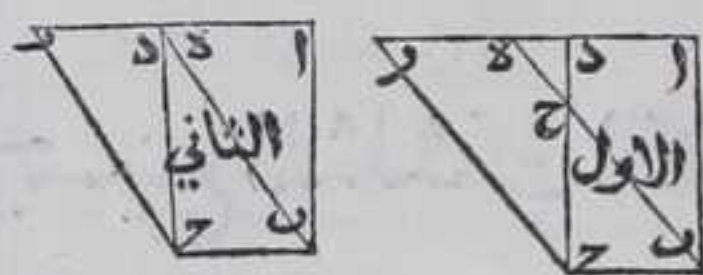 ا د ه ر
ح
الاول
ب
ح
ا ه د ر
الثاني
ب
ح